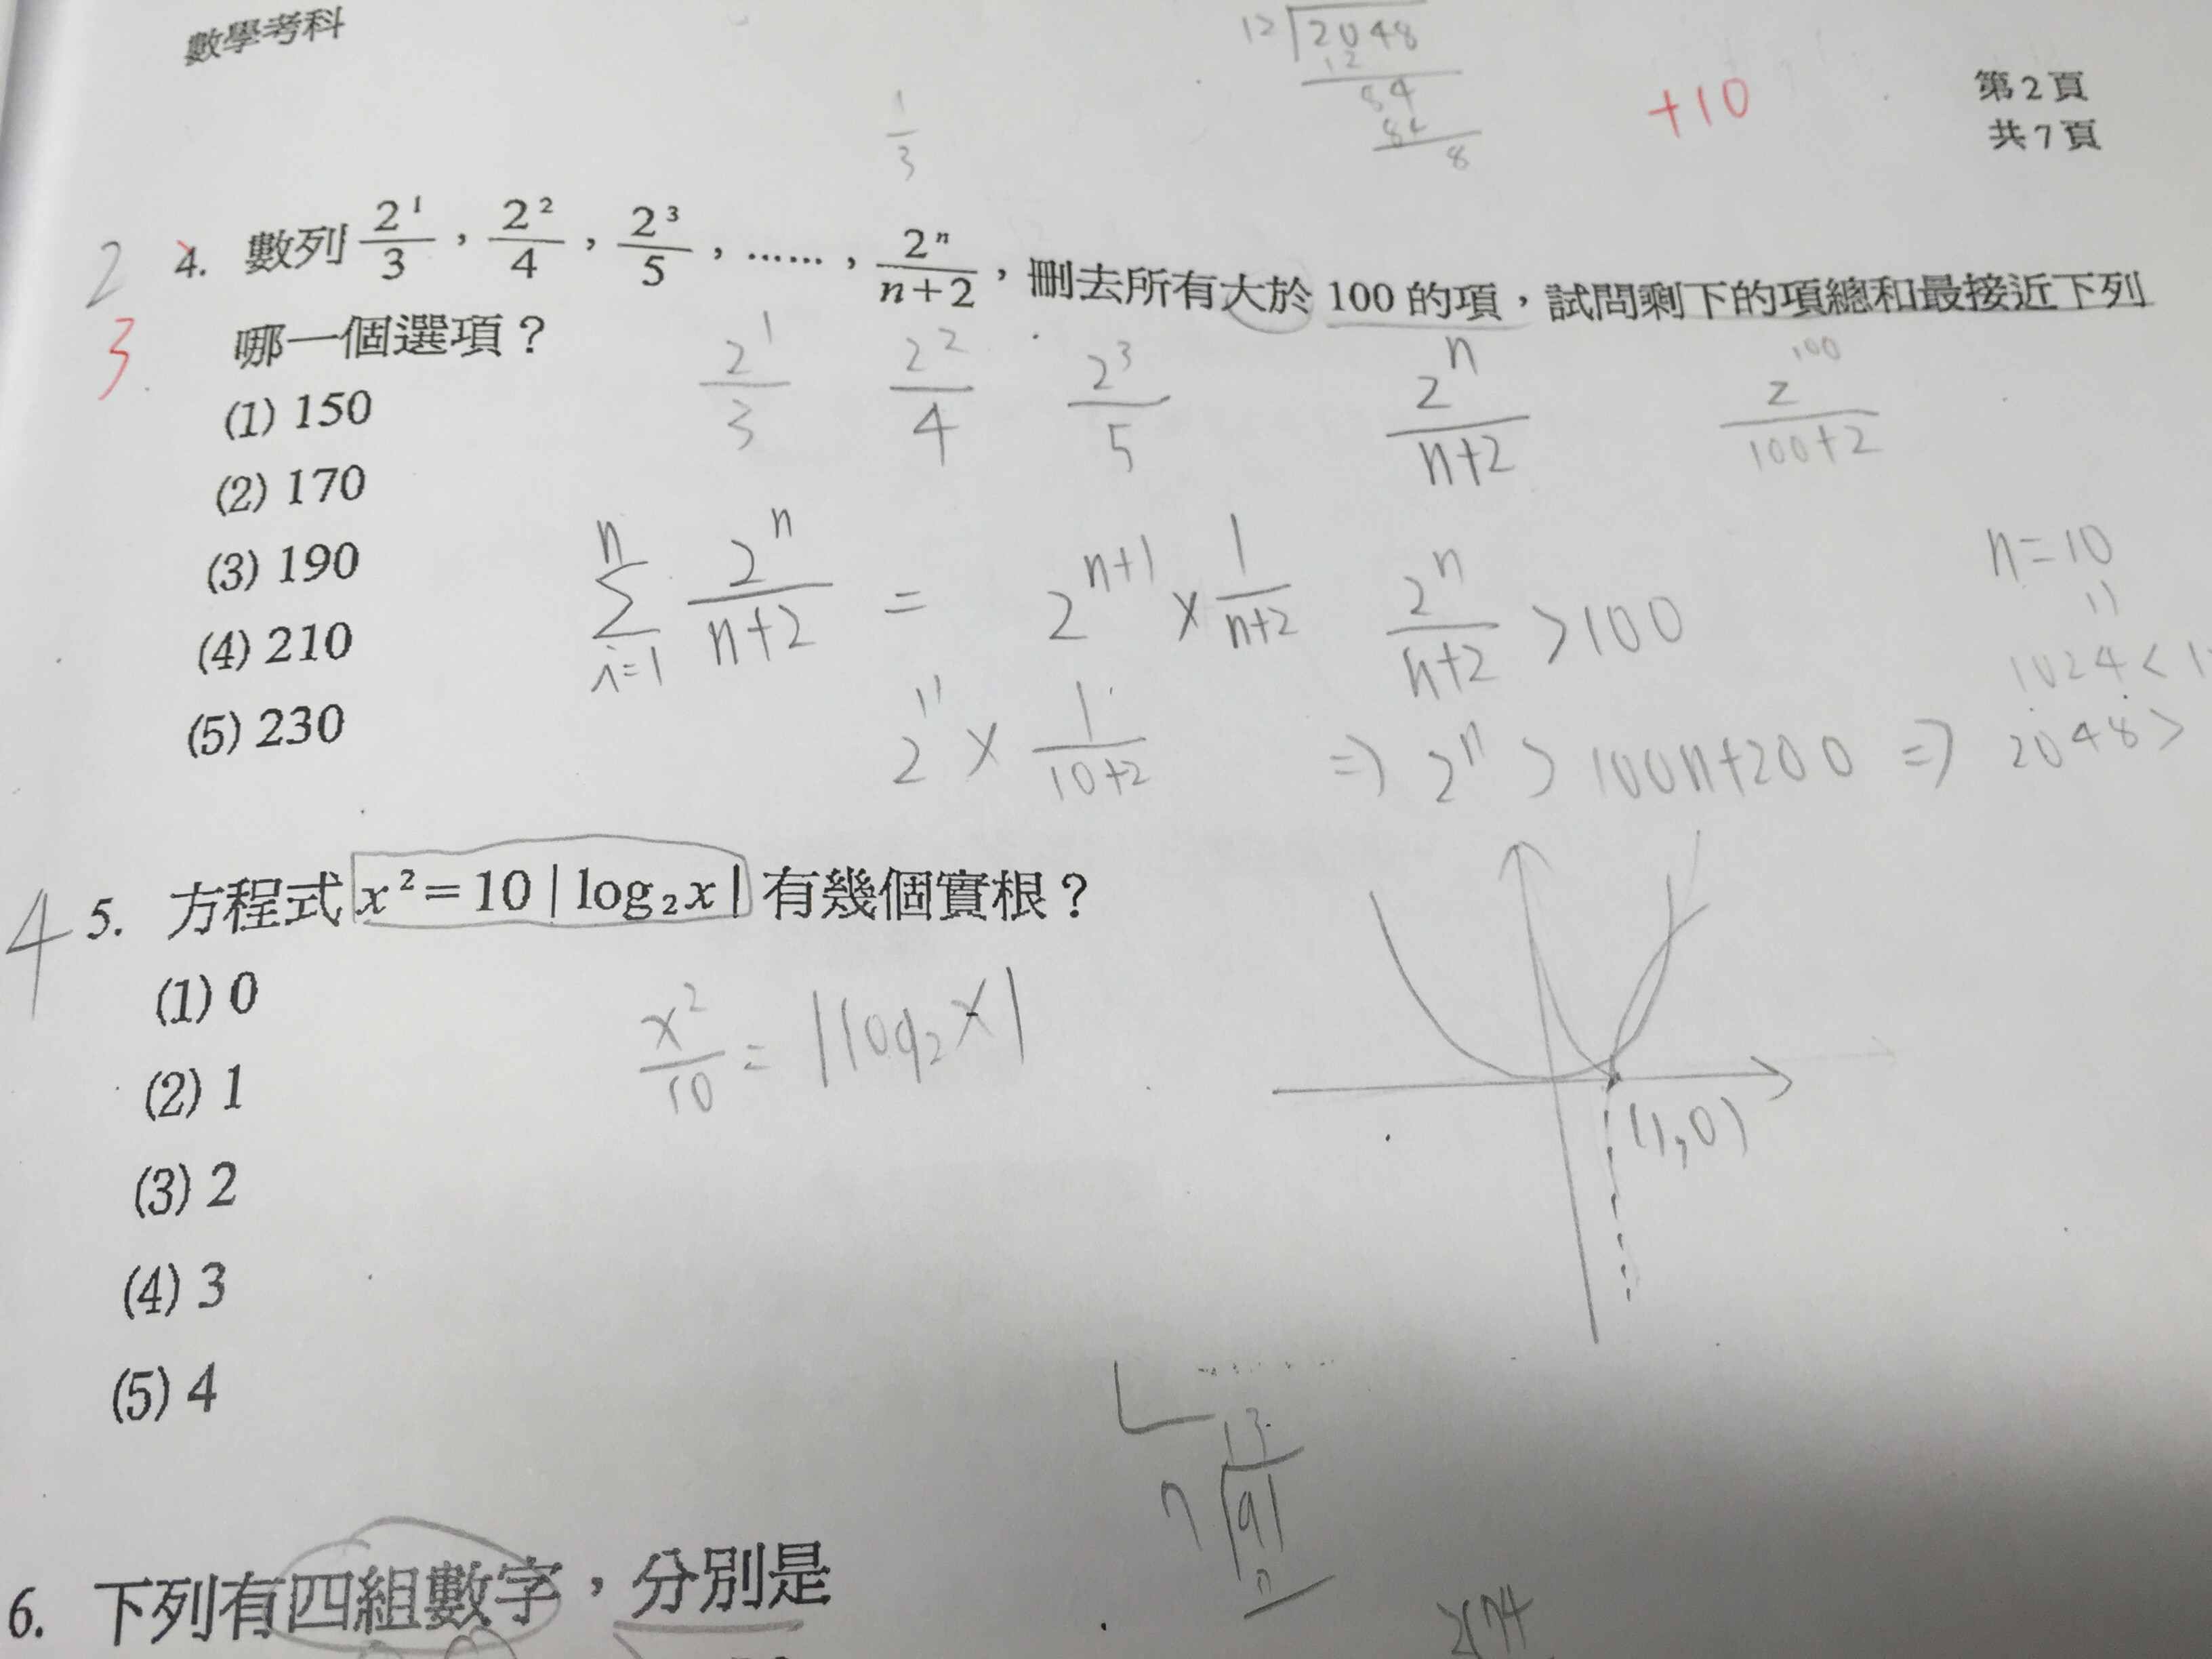 數學考科
12 2048
12
84
84
8
1/3
+10
第2頁
共7頁
2
3
4. 數列 2¹/3，2²/4，2³/5，……，2ⁿ/(n+2)，刪去所有大於 100 的項，試問剩下的項總和最接近下列
哪一個選項？
(1) 150
(2) 170
(3) 190
(4) 210
(5) 230
2¹/3 2²/4 2³/5 2ⁿ/(n+2) 2¹⁰⁰/(100+2)
n Σ i=1 2ⁿ/(n+2) = 2ⁿ⁺¹ × 1/(n+2)
2¹¹ × 1/(10+2)
2ⁿ/(n+2) > 100
⇒ 2ⁿ > 100n+200 ⇒
n=10
11
1024 <
2048 >
4
5. 方程式 x²=10|log₂x| 有幾個實根？
(1) 0
(2) 1
(3) 2
(4) 3
(5) 4
x²/10 = |log₂x|
(1,0)
13
7 91
7
6. 下列有四組數字，分別是